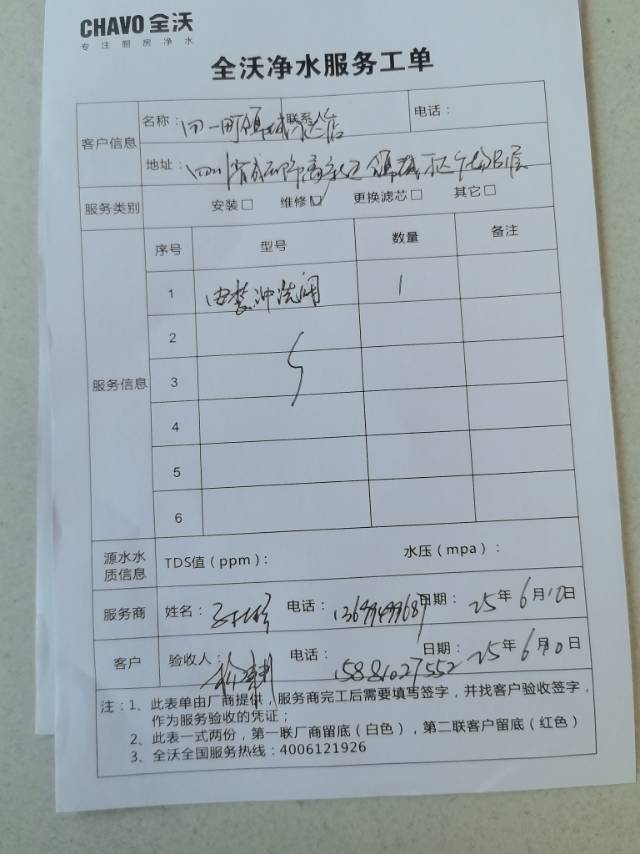 CHAVO 全沃
专注厨房净水
全沃净水服务工单
客户信息
名称： 联系人 电话：
地址：
服务类别 安装□ 维修☑ 更换滤芯□ 其它□
服务信息
序号 型号 数量 备注
1 冲洗阀 1
2
3
4
5
6
源水水质信息 TDS值（ppm）： 水压（mpa）：
服务商 姓名： 电话： 日期：25年6月10日
客户 验收人： 电话：15881027552 日期：25年6月10日
注：1、此表单由厂商提供，服务商完工后需要填写签字，并找客户验收签字，
作为服务验收的凭证；
2、此表一式两份，第一联厂商留底（白色），第二联客户留底（红色）
3、全沃全国服务热线：4006121926